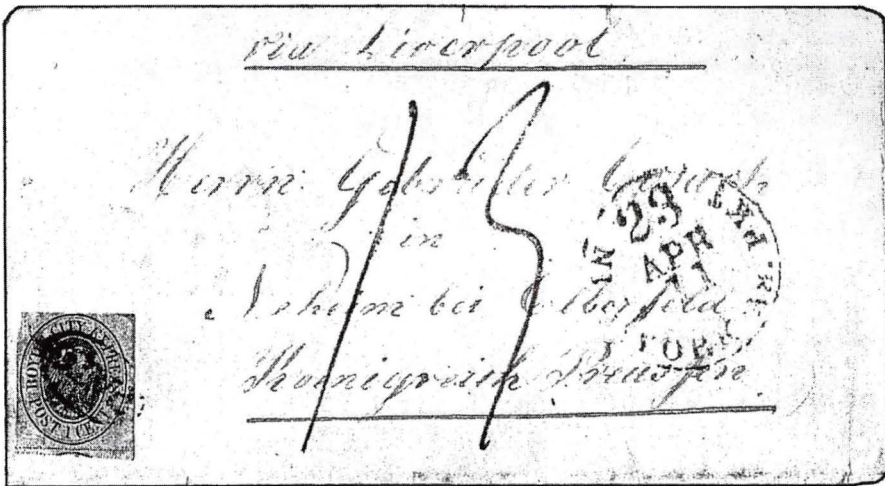 via Liverpool
13
Herrn Gebrüder
in
bei Elberfeld
Koenigreich Preussen
23
APR
11
N. YORK
PKT
CITY EXPRESS
POST 1 CENT